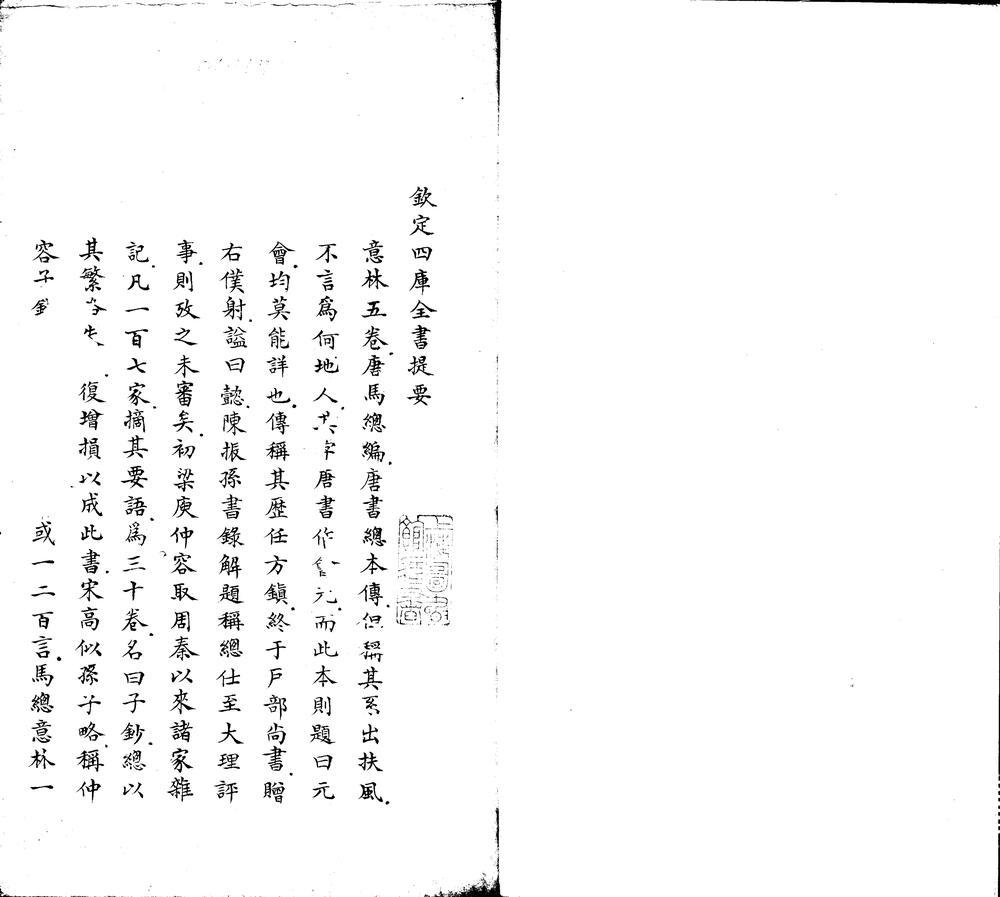 欽定四庫全書提要
意林五卷唐馬總編唐書總本傳但稱其系出扶風
不言爲何地人其字唐書作會元而此本則題曰元
會均莫能詳也傳稱其歷任方鎮終于戶部尚書贈
右僕射謚曰懿陳振孫書錄解題稱總仕至大理評
事則攷之未審矣初梁庾仲容取周秦以來諸家雜
記凡一百七家摘其要語爲三十卷名曰子鈔總以
其繁 復增損以成此書宋高似孫子略稱仲
容子鈔 或一二百言馬總意林一